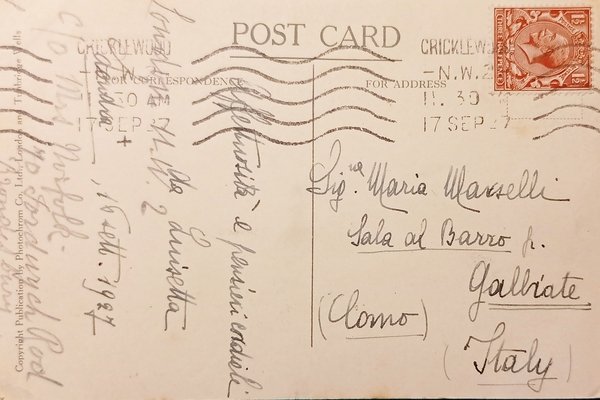 POST CARD
FOR CORRESPONDENCE
FOR ADDRESS
CRICKLEWOOD
N.W.2
11.30 AM
17 SEP 27
CRICKLEWO
N.W.2
11.30
17 SEP 27
THREE HALF PENCE
1½ 1½
Sig.na Maria Marselli
Sala al Barro fr.
Galbiate
(Como)
(Italy)
Affettuosità e pensieri cordiali
Da Luisetta
London N.W. 2
Londra, 16 sett. 1927
c/o Mrs Norfolk
Road
Copyright Publication by Photochrom Co., Ltd., London and Tunbridge Wells